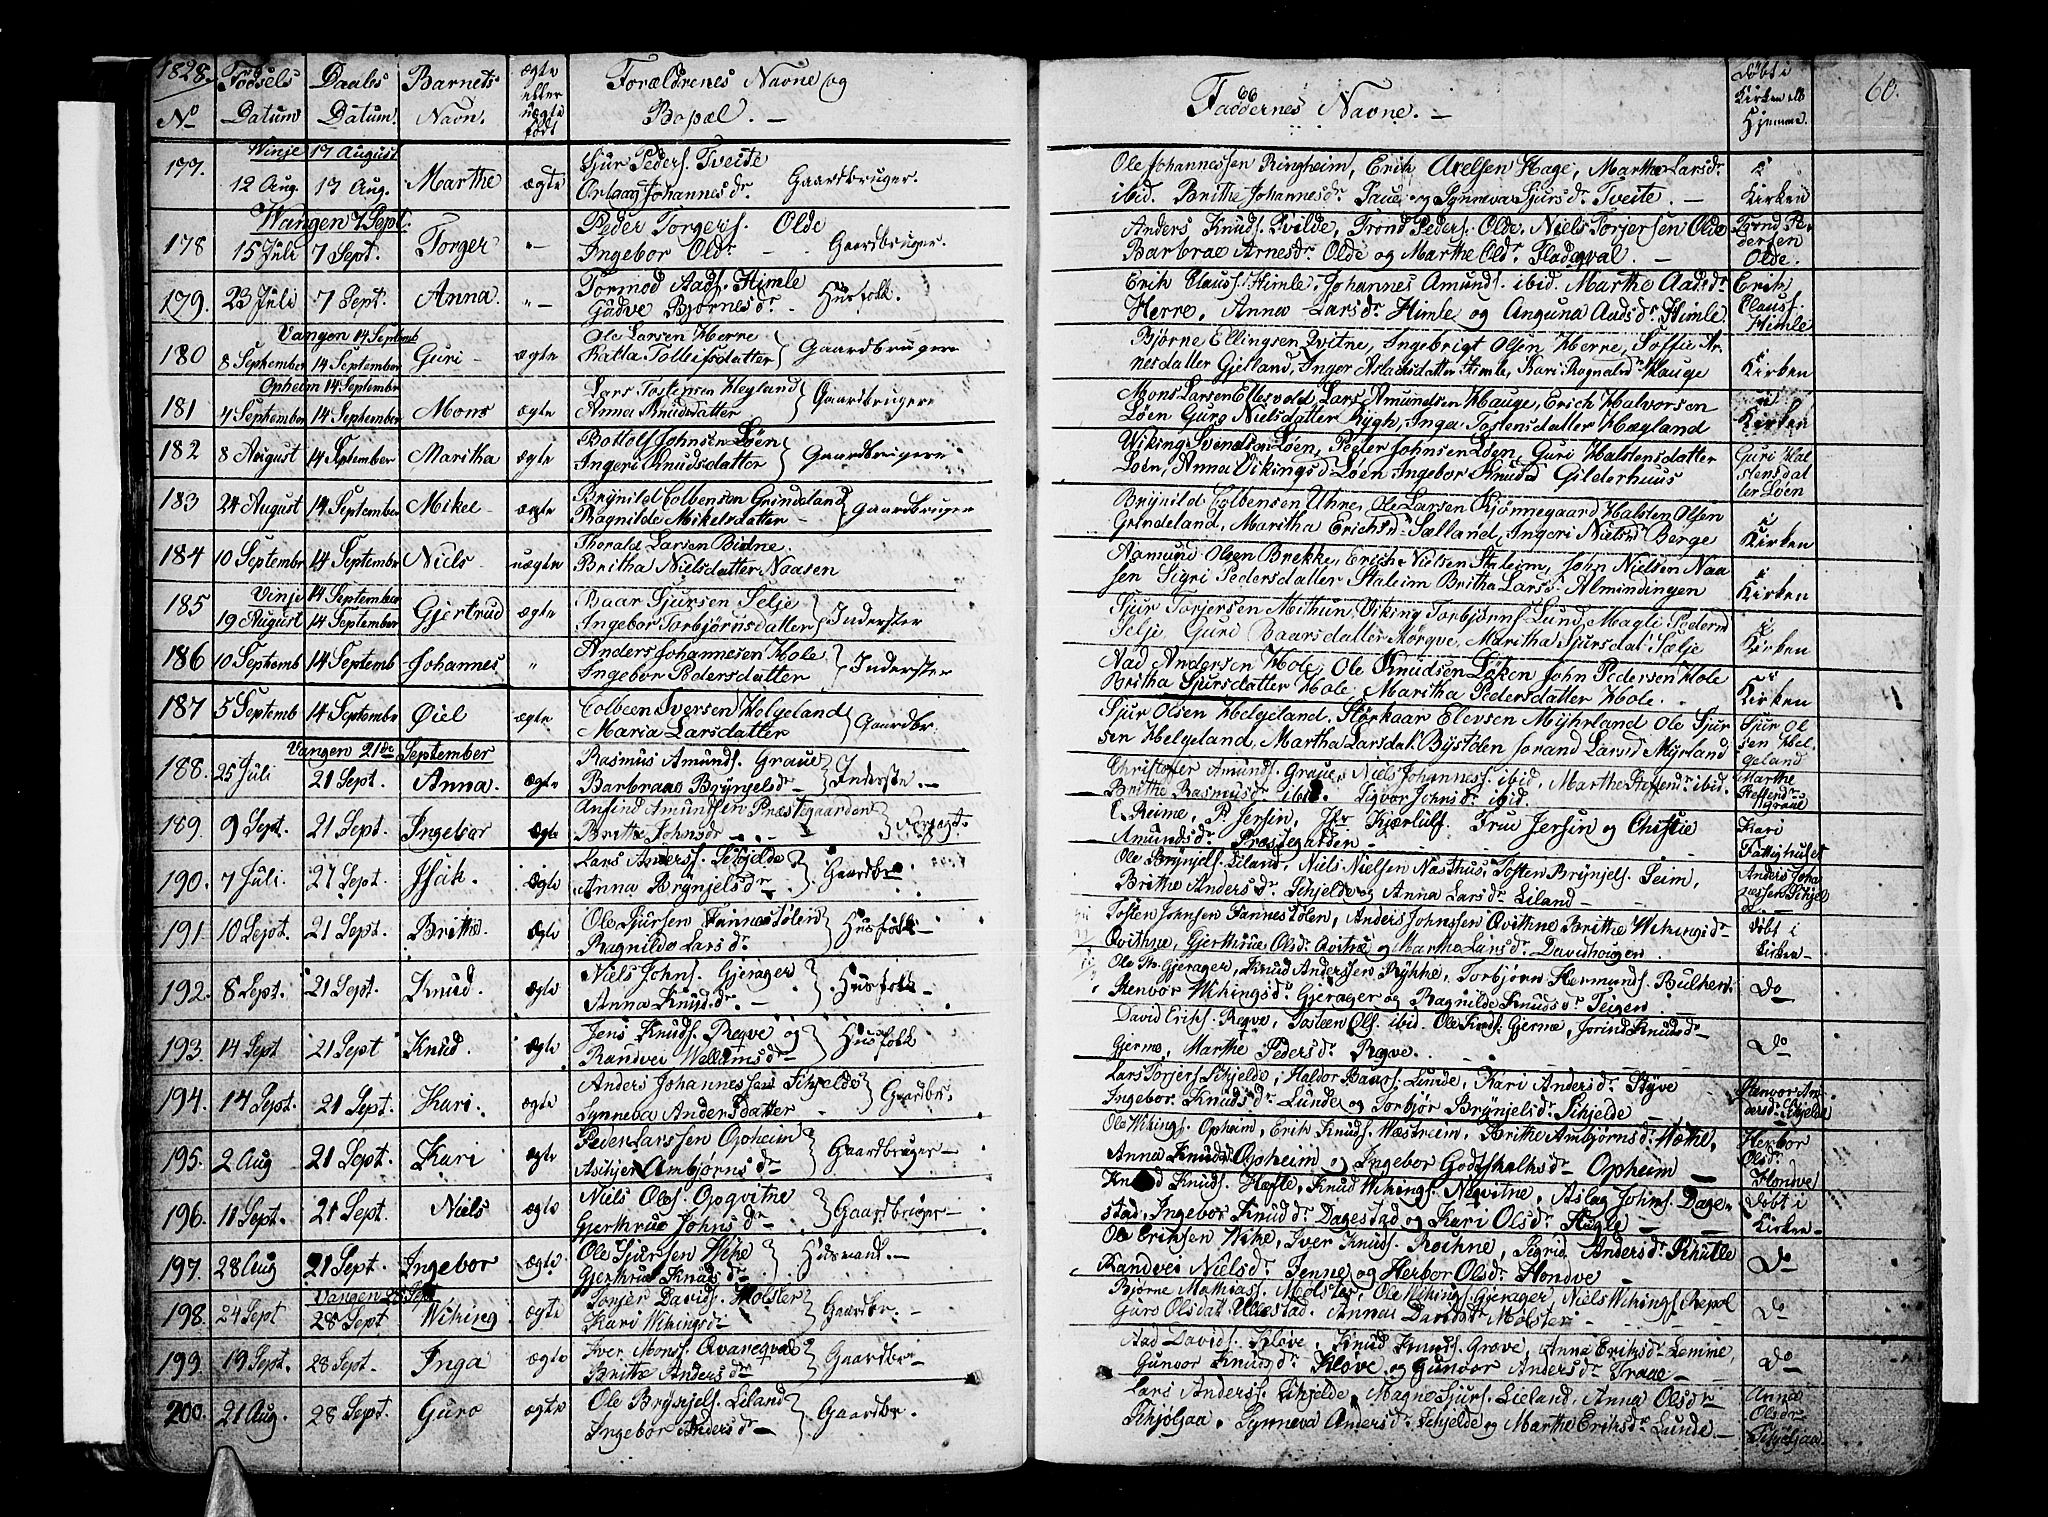 1828.
No
Fødsels Datum
Daabs Datum.
Barnets Navn.
ægte eller uægte født
Forældrenes Navne og Bopæl. —
Faddernes Navne. —
Døbt i Kirken ell Hjemme.
60.
Winje 17 August
177. 12 Aug. 17 Aug. Marthe ægte
Sjur Peders. Tveite
Johannesdr Gaardbruger.
Ole Johannessen Ringheim, Erik Axelsen Hage, Marthe Larsdr
ibid. Brithe Johannesdr og Synneva Sjursdr Tveite. —
i Kirken
Wangen 7 Sept.
178 15 Juli 7 Sept. Torger "-
Peder Torgers. Olde
Ingebor Olsdr - - Gaardbruger.
Anders Knuds. Qvilde, Trond Peders. Olde, Niels Torjersen Olde
Barbrae Arnesdr Olde og Marthe Olsdr —
Trond Pedersen Olde.
179. 23 Juli 7 Sept. Anna. "-
Tormod Aads. Himle
Gudve Bjørnesdr Husfolk.
Erik Clauss. Himle, Johannes Amunds. ibid. Marthe Aadsdr
Herre, Anna Larsdr Himle og Anguna Aadsdr Himle.
Erik Clauss. Himle
Vangen 14 Septemb
180 8 September 14 September Guri - ægte
Ole Larsen Herre
Ratla Tollefsdatter Gaardbrugere
Bjørne Ellingsen Qvitne, Ingebrigt Olsen Herre, Soffie Ar-
nesdatter Gjelland, Inger Aslaksdatter Himle, Kari Rognaldsd Hauge
i Kirken
Opheim 14 September
181 4 September 14 September Mons ægte
Lars Tostensen Heyland
Anna Knudsdatter Gaardbrugere
Mons Larsen Lars Amundsen Hauge, Erich Halvorsen
Løen Guro Nielsdatter Rygh, Inga Tostensdatter Hægland
i Kirken
182 8 August 14 September Maritha ægte
Bottolf Johnsen Løen
Ingeri Knudsdatter Gaardbrugere
Wiking Svendsen Løen, Peder Johnsen Løen, Guri Halstensdatter
Løen, Anna Vikingsd Løen Ingebor Knudsd Gilderhuus
Guri Halstensdatter Løen
183 24 August 14 September Mikel - ægte
Brynild Colbensen Grindeland
Ragnilde Mikelsdatter - Gaardbruger
Brynild Colbensen Uhne, Ole Larsen Kjønnegaard Halsten Olsen
Grindeland, Maritha Erichsd. Sælland, Ingeri Nielsd Berge
i Kirken
184 10 September 14 September Niels - uægte
Thorald Larsen Bidne
Britha Nielsdatter Naasen
Aamund Olsen Brekke, Erich Nielsen Staleim, John Nielsen Naa
sen Sigri Pedersdatter Staleim Britha Larsd. Almindingen
i Kirken
Vinje 14 September
185 19 August 14 September Gjertrud ægte
Baar Sjursen Selje
Ingebor Torbjørnsdatter Inderster
Sjur Torjersen Mithun, Viking Torbjørns. Lund, Magli Pedersd
Selje Guri Baarsdatter Maritha Sjursdat. Sælje
i Kirken
186 10 Septemb 14 Septemb Johannes "
Anders Johannesen Hole
Ingebor Pedersdatter Inderster
Aad Andersen Hole, Ole Knudsen Løken John Pedersen Hole
Britha Sjursdatter Hole, Maritha Pedersdatter Hole.
i Kirken
187 5 Septemb 14 September Øiel - ægte
Colbeen Iversen Helgeland
Maria Larsdatter Gaardbr.
Sjur Olsen Helgeland, Størkaar Elevsen Myhrland Ole Sjur
sen Helgeland, Martha Larsdat. Bystølen Jorand Larsd Myrland
Sjur Olsen Helgeland
Vangen 21de September
188. 25 Juli 21 Sept. Anna. ægte
Rasmus Amunds. Graue
Barbraae Brynjelsdr - Inderste. -
Christoffer Amunds. Graue, Niels Johanness. ibid, Marthe Steffendr ibid.
Brithe Rasmusdr ibid. Sigvor Johnsdr ibid.
Marthe Steffendr Graue
189. 9 Sept. 21 Sept. Ingebor ægte
Anfind Amundssen Præstgaarden
Brithe Johnsdr
E. Reime, P Jersin, Jfr Kjærlulf. Fru Jersin og Christie
Amundsdr Præstegarden -
Kari Fattighuset
190. 7 Juli. 21 Sept. Isak. ægte
Lars Anderss. Schjelde
Anna Brynjelsdr Gaardbr.
Ole Brynjels. Liland, Niels Nielsen Nasthus, Tosten Brynjels. Seim,
Brithe Andersdr Schjelde og Anna Larsdr Liland -
Anders Johannessen
191. 10 Sept. 21 Sept. Brithe. ægte
Ole Sjursen Fannestølen
Ragnilde Larsdr Husfolk -
Tosten Johnsen Fannestølen, Anders Johnssen Qvithne Brithe Wikingsdr
Qvithne, Gjerthrue Olsdr og Marthe Larsdr Davidhougen
Døbt i Kirken -
192. 8 Sept. 21 Sept. Knud ægte
Niels Johns. Gjerager
Anna Knudsdr - Husfolk -
Ole Th. Gjerager, Knud Anderssen Rykke, Torbjørn Hermunds. Bulken.
Stenvor Wikingsdr Gjerager og Ragnilde Knudsdr Teigen
Do
193. 14 Sept 21 Sept Knud. ægte
Jens Knuds. Regve og
Randvei Wellomsdr - Husfolk
David Erichs. Regve, Tosteen Ols. ibid. Ole Knds. Gjerme, Jorind Knudsdr
Gjerme, Marthe Pedersdr Regve.
Do
194. 17 Sept. 21 Sept. Kari. ægte
Anders Johannessen Schjelde
Synneva Andersdatter Gaardbr.
Lars Torjers. Schjelde, Haldor Baars. Lunde, Kari Andersdr Styve
Ingebor Knudsdr Lunde og Torbjør Brynjelsdr Schjelde
Stenvor Andersdr Schjelde
195. 2 Aug 21 Sept. Kari ægte
Peder Larssen Opheim
Ambjørnsdr Gaardbruger -
Ole Wikings. Opheim, Erik Knuds. Wæstreim, Brithe Ambjørnsdr
Anna Knudsd Opheim og Ingebor Godtskalksdr Opheim -
Herbor Olsdr Hondve
196. 11 Sept. 21 Sept. Niels ægte
Niels Olss. Opqvitne
Gjerthrue Johnsdr - Gaardbruger -
Knud Knuds. Hæfte, Knud Wikings. Neqvitne, Aslag Johns. Dage-
stad, Ingebor Knudsdr Dagestad og Kari Olsdr
Døbt i Kirken -
197. 28 Aug 21 Sept. Ingebor ægte
Ole Sjursen Wike
Gjerthrue Knudsdr Husmand. -
Ole Eriksen Wike, Iver Knuds. Rokne, Sigrid Andersdr Schulle
Randvei Nielsdr Tenne og Herbor Olsdr Hondve -
Do
Vangen 28 Sept
198. 24 Sept 28 Sept Wiking ægte
Torjer Davids. Mølster
Kari Wikingsdr Gaardbr. -
Bjørne Mathiass. Mølster, Ole Wikings. Gjerager, Niels Wikings.
Guro Olsdat. Ullestad, Anna Davidsdr Mølster -
Do
199. 19 Sept. 28 Sept. Inga ægte
Iver Monss.
Brithe Andersdr Gaardbr.
Aad Davids. Kløve, Knud Knuds. Grove, Anna Eriksdr Lemme,
Gunvor Knudsdr Kløve og Gunvor Andersdr Traae -
Do
200. 21 Aug. 28 Sept. Guro ægte
Ole Brynjels. Liland
Ingebor Andersdr Gaardbr.
Lars Anderss. Schjelde, Magne Sjurs. Lieland, Anna Olsdr
Schjølgaa, Synneva Andersdr Schjelde og Marthe Eriksdr Lunde. -
Anna Olsdr